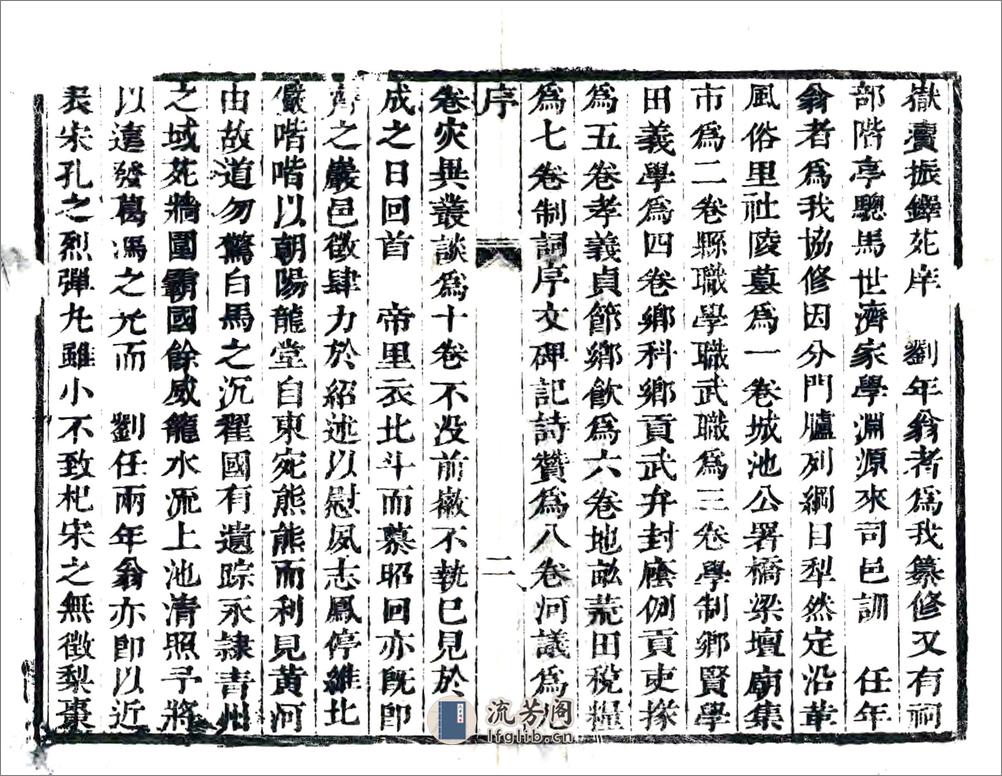 嶽瀆振鐸於庠　劉年翁者爲我纂修又有祠
部階亭驄馬世濟家學淵源來司邑訓　任年
翁者爲我協修因分門臚列綱目犁然定沿革
風俗里社陵墓爲一卷城池公署橋梁壇廟集
市爲二卷縣職學職武職爲三卷學制鄉賢學
田義學爲四卷鄉科鄉貢武弁封廕例貢吏掾
爲五卷孝義貞節鄉飲爲六卷地畝荒田稅糧
爲七卷制詞序文碑記詩贊爲八卷河議爲九
序
二
卷灾異叢談爲十卷不没前徽不執已見於
成之日回首　帝里衣北斗而慕昭回亦旣卽
之巖邑徵肆力於紹述以慰夙志鳳停維北
儼喈喈以朝陽龍堂自東宛熊熊而利見黄河
由故道勿驚白馬之沉翟國有遺踪永隷青州
之域苑牆圃霸國餘威龍水流上池清照予將
以遠發葛馮之光而　劉任兩年翁亦卽以近
表宋孔之烈彈丸雖小不致杞宋之無徵梨棗
流芳阁
lfglib.cn